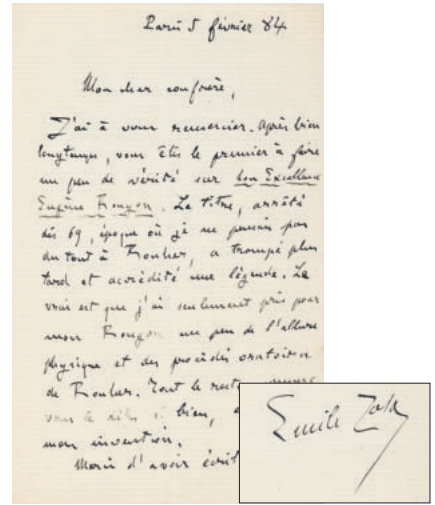 Paris 5 février 84
Mon cher confrère,
J'ai à vous remercier. Après bien
longtemps, vous êtes le premier à faire
un peu de vérité sur Son Excellence
Eugène Rougon. Le titre, arrêté
dès 69, époque où je ne pensais pas
du tout à Rouher, a trompé plus
tard et accrédité une légende. Le
vrai est que j'ai seulement pris pour
mon Rougon un peu de l'allure
physique et des procédés oratoires
de Rouher. Tout le reste, comme
vous le dites si bien,
mon invention.
Merci d'avoir écrit
Emile Zola